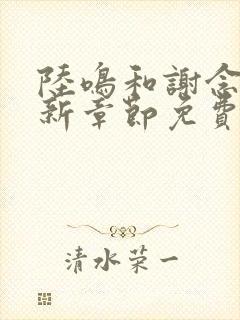 陸鳴和謝念
新章節免費
清水荣一